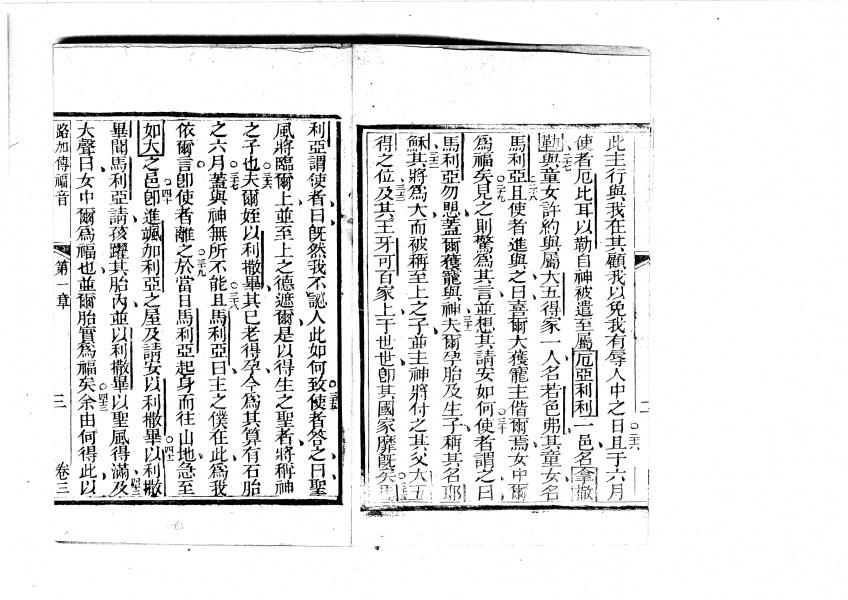 此主行與我在其顧我以免我有辱人中之日且于六月
二六
使者厄比耳以勒自神被遣至屬厄亞利利一邑名拿撒
勒與童女許約與屬大五得家一人名若色弗其童女名
二七
馬利亞且使者進與之曰喜爾大獲寵主偕爾焉女中爾
二八
為福矣見之則驚為其言並想其請安如何使者謂之曰
二九 三十
馬利亞勿思蓋爾獲寵與神夫爾孕胎及生子稱其名耶
三一
穌其將為大而被稱至上之子並主神將付之其父大五
三二
得之位及其王牙可百家上于世世即其國家靡既矣馬
三三
二
利亞謂使者曰既然我不認人此如何致使者答之曰聖
三五
風將臨爾上並至上之德遮爾是以得生之聖者將稱神
之子也夫爾姪以利撒畢其已老得孕今為其算有石胎
三六
之六月蓋與神無所不能且馬利亞曰主之僕在此為我
三七 三八
依爾言即使者離之於當日馬利亞起身而往山地急至
三九
如大之邑即進颯加利亞之屋及請安以利撒畢以利撒
四十 四一
畢聞馬利亞請孩躍其胎內並以利撒畢以聖風得滿及
四二
大聲曰女中爾為福也並爾胎實為福矣余由何得此以
四三
路加傳福音 第一章 三 卷三